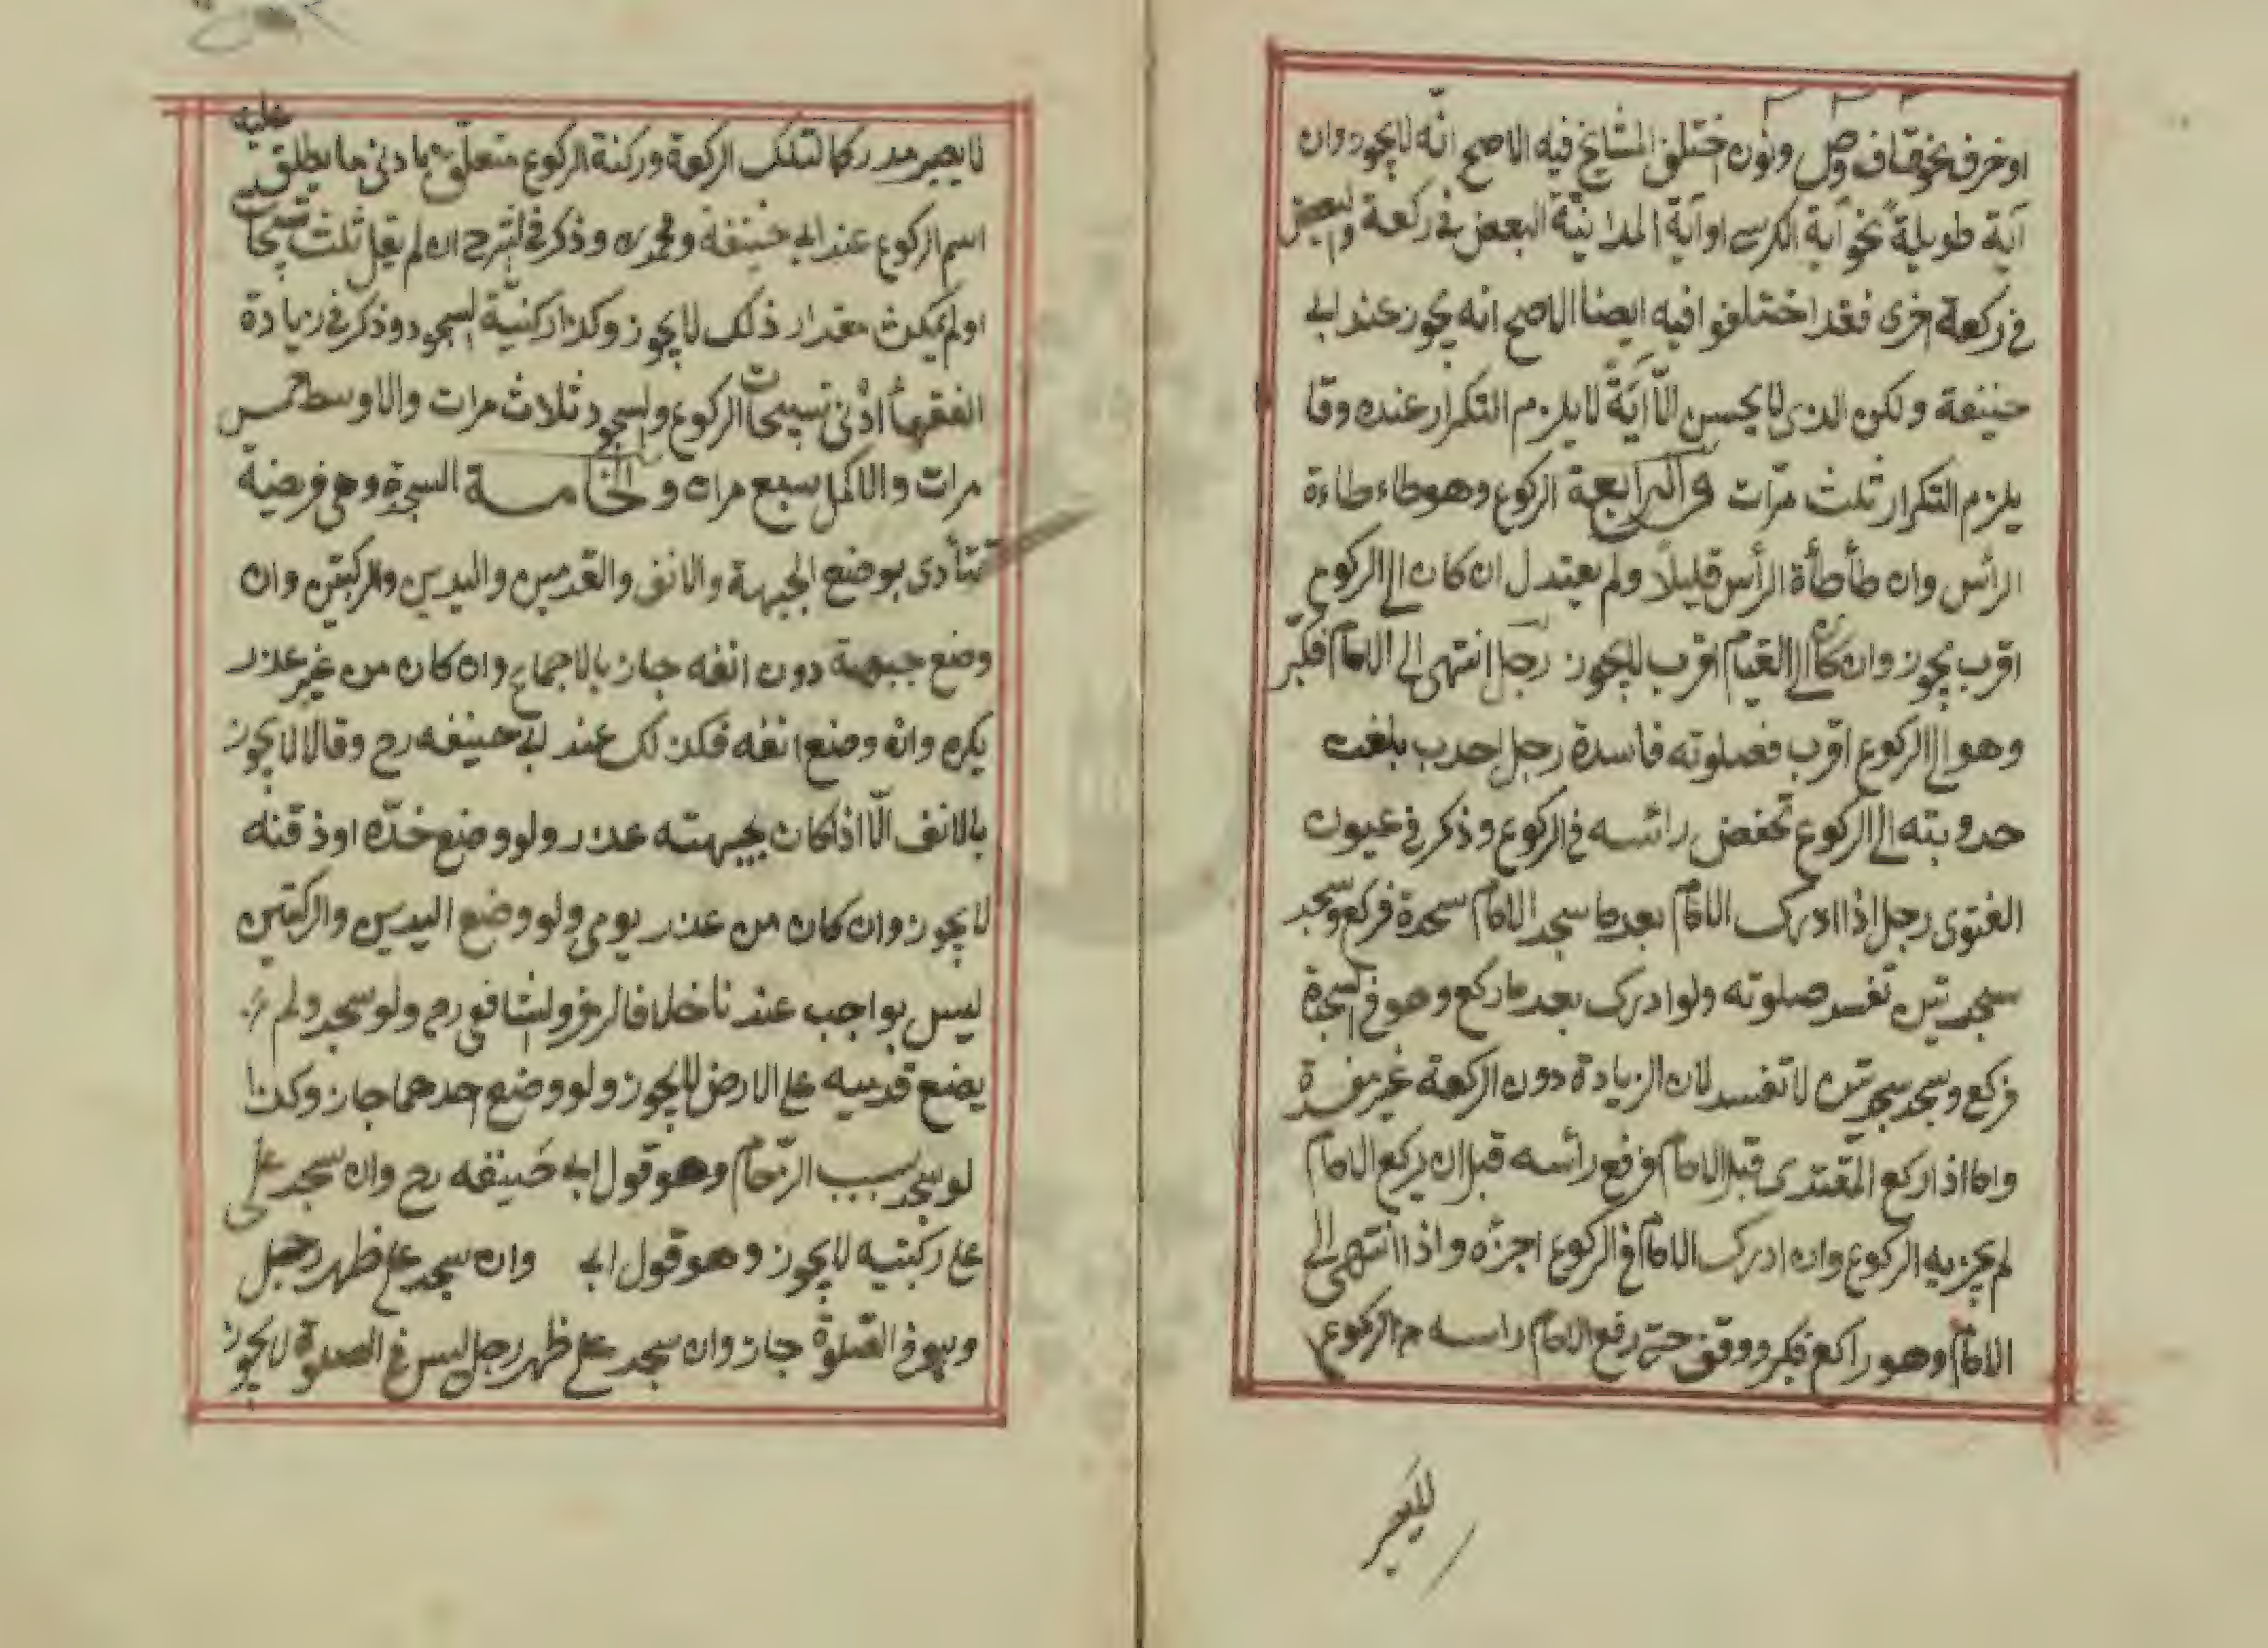 او حرف نحو قاف وص ونون اختلف المشايخ فيه الاصح انّه لا يجوز وان
آية طويلةً نحو آية الكرسي او آية المداينة البعض في ركعة والبعض
في ركعة اخرى فقد اختلفوا فيه ايضا الاصح انه يجوز عند ابي
حنيفة ولكن الذي لا يحسن الّا آيَةً لا يلزم التكرار عنده وقا
يلزم التكرار ثلث مرّات والرابعة الركوع وهو طاءطاءة
الرأس وان طأطأة الرأس قليلاً ولم يعتدل ان كان الى الركوع
اقرب يجوز وان كان الى القيام اقرب لا يجوز رجل انتهى الى الامام فكبّر
وهو الى الركوع اقرب فصلوته فاسدة رجل احدب بلغت
حدوبته الى الركوع تخفض رائسه في الركوع وذكر في عيون
الفتوى رجل اذا ادرك الامام بعد ما سجد الامام سجدة فركع وسجد
سجدتين تفسد صلوته ولو ادرك بعد ما ركع وهو في السجدة
فركع وسجد سجدتين لا تفسد لان الزيادة دون الركعة غير مفسدة
واما اذا ركع المقتدى قبل الامام فرفع رأسه قبل ان يركع الامام
لم يجزيه الركوع وان ادرك الامام في الركوع اجزئه واذا انتهى الى
الامام وهو راكع فكبر ووقف حتى رفع الامام راسه من الركوع
لا يصير مدركا لتلك الركعة وركنة الركوع متعلّق بادنى ما يطلق عليه
اسم الركوع عند ابي حنيفة ومحمد وذكر في الشرح ان لم يقل ثلث تسبيحات
او لم يمكث مقدار ذلك لا يجوز وكذا ركنيّة السجود وذكر في زيادة
الفقهاء ادْنى تسبيحات الركوع والسجود ثلاث مرات والاوسط خمس
مرات والاكمل سبع مرات والخامسة السجدة وهى فريضة
تتأدى بوضع الجبهة والانف والقدمين واليدين والركبتين وان
وضع جبهة دون انفه جاز بالاجماع وان كان من غير عذر
يكره وان وضع انفه فكذلك عند ابي حنيفه رح وقالا لا يجوز
بالانف الّا اذا كان بجبهته عذر ولو وضع خدّه او ذقنه
لا يجوز وان كان من عذر يومى ولو وضع اليدين والركبتين
ليس بواجب عندنا خلافا لزفر والشافعى رح ولو سجد ولم
يضع قدميه على الارض لا يجوز ولو وضع احدهما جاز وكذا
لو سجد بسبب الزحام وهو قول ابي حَنيفه رح وان سجد على
على ركبتيه لا يجوز وهو قول ابي وان سجد على ظهر رجل
وهو في الصّلوة جاز وان سجد على ظهر رجل ليس في الصلوة لا يجوز